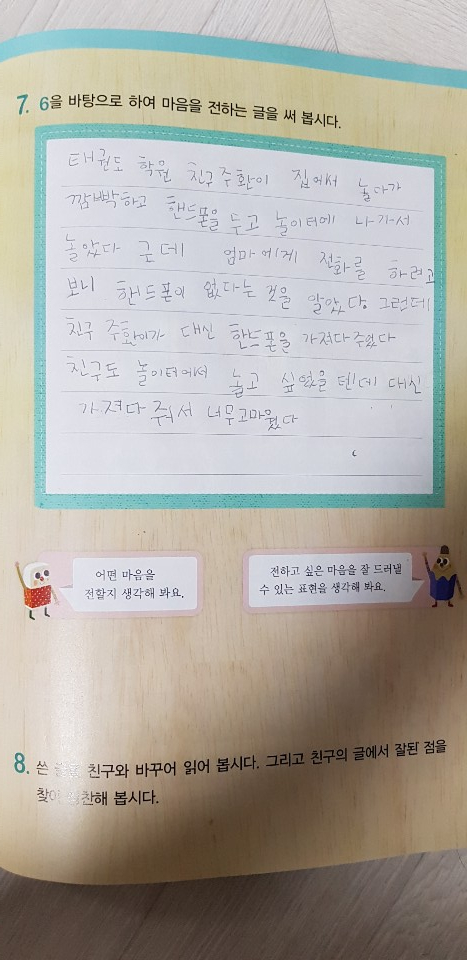 7. 6을 바탕으로 하여 마음을 전하는 글을 써 봅시다.
태권도 학원 친구 주환이 집에서 놀다가
깜빡하고 핸드폰을 두고 놀이터에 나가서
놀았다 근데 엄마에게 전화를 하려고
보니 핸드폰이 없다는 것을 알았다 그런데
친구 주환이가 대신 핸드폰을 가져다 주웠다
친구도 놀이터에서 놀고 싶었을 텐데 대신
가져다 줘서 너무고마웠다
어떤 마음을
전할지 생각해 봐요.
전하고 싶은 마음을 잘 드러낼
수 있는 표현을 생각해 봐요.
8. 쓴 친구와 바꾸어 읽어 봅시다. 그리고 친구의 글에서 잘된 점을
찾아 칭찬해 봅시다.